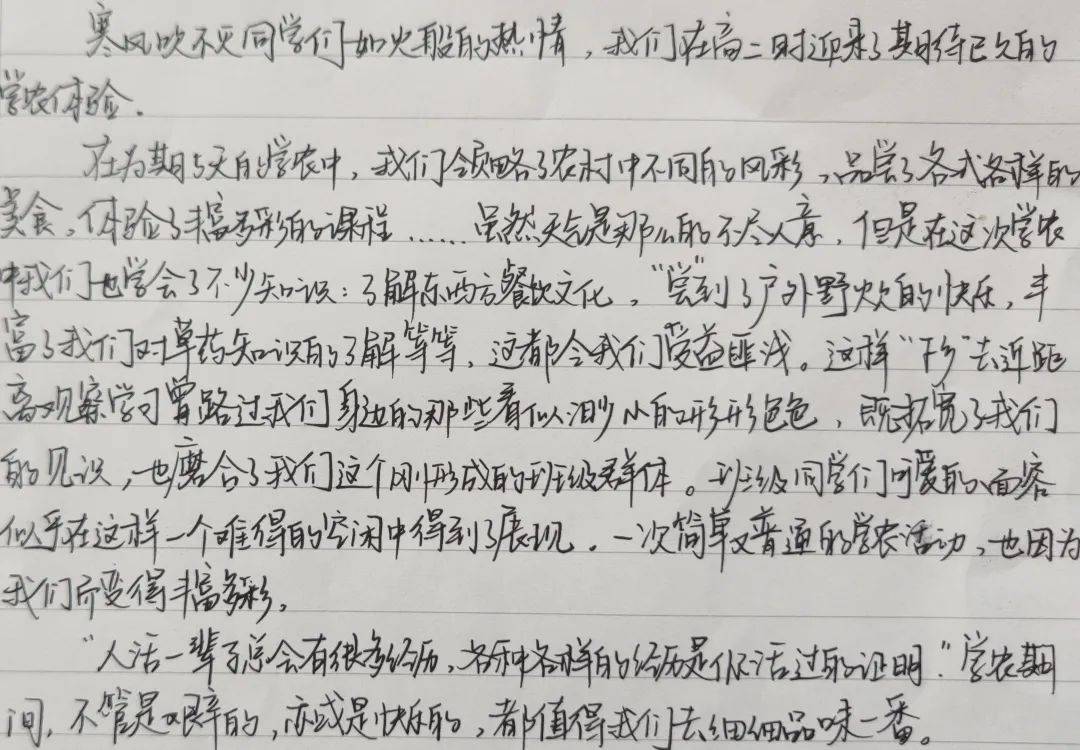 寒风吹不灭同学们如火般的热情，我们在高二时迎来了期待已久的
学农体验．
在为期5天的学农中，我们领略了农村中不同的风彩，品尝了各式各样的
美食，体验了丰富多彩的课程……虽然天气是那么的不尽人意，但是在这次学农
中我们也学会了不少知识：了解东西方餐饮文化，“尝”到了户外野炊的快乐，丰
富了我们对草药知识的了解等等，这都令我们受益匪浅。这样“下乡”去近距
离观察学习曾路过我们身边的那些看似渺小的形形色色，既拓宽了我们
的见识，也磨合了我们这个刚形成的班级群体。班级同学们可爱的面容
似乎在这样一个难得的空闲中得到了展现．一次简单又普通的学农活动，也因为
我们而变得丰富多彩。
“人活一辈子总会有很多经历，各种各样的经历是你活过的证明．”学农期
间，不管是艰辛的，亦或是快乐的，都值得我们去细细品味一番。